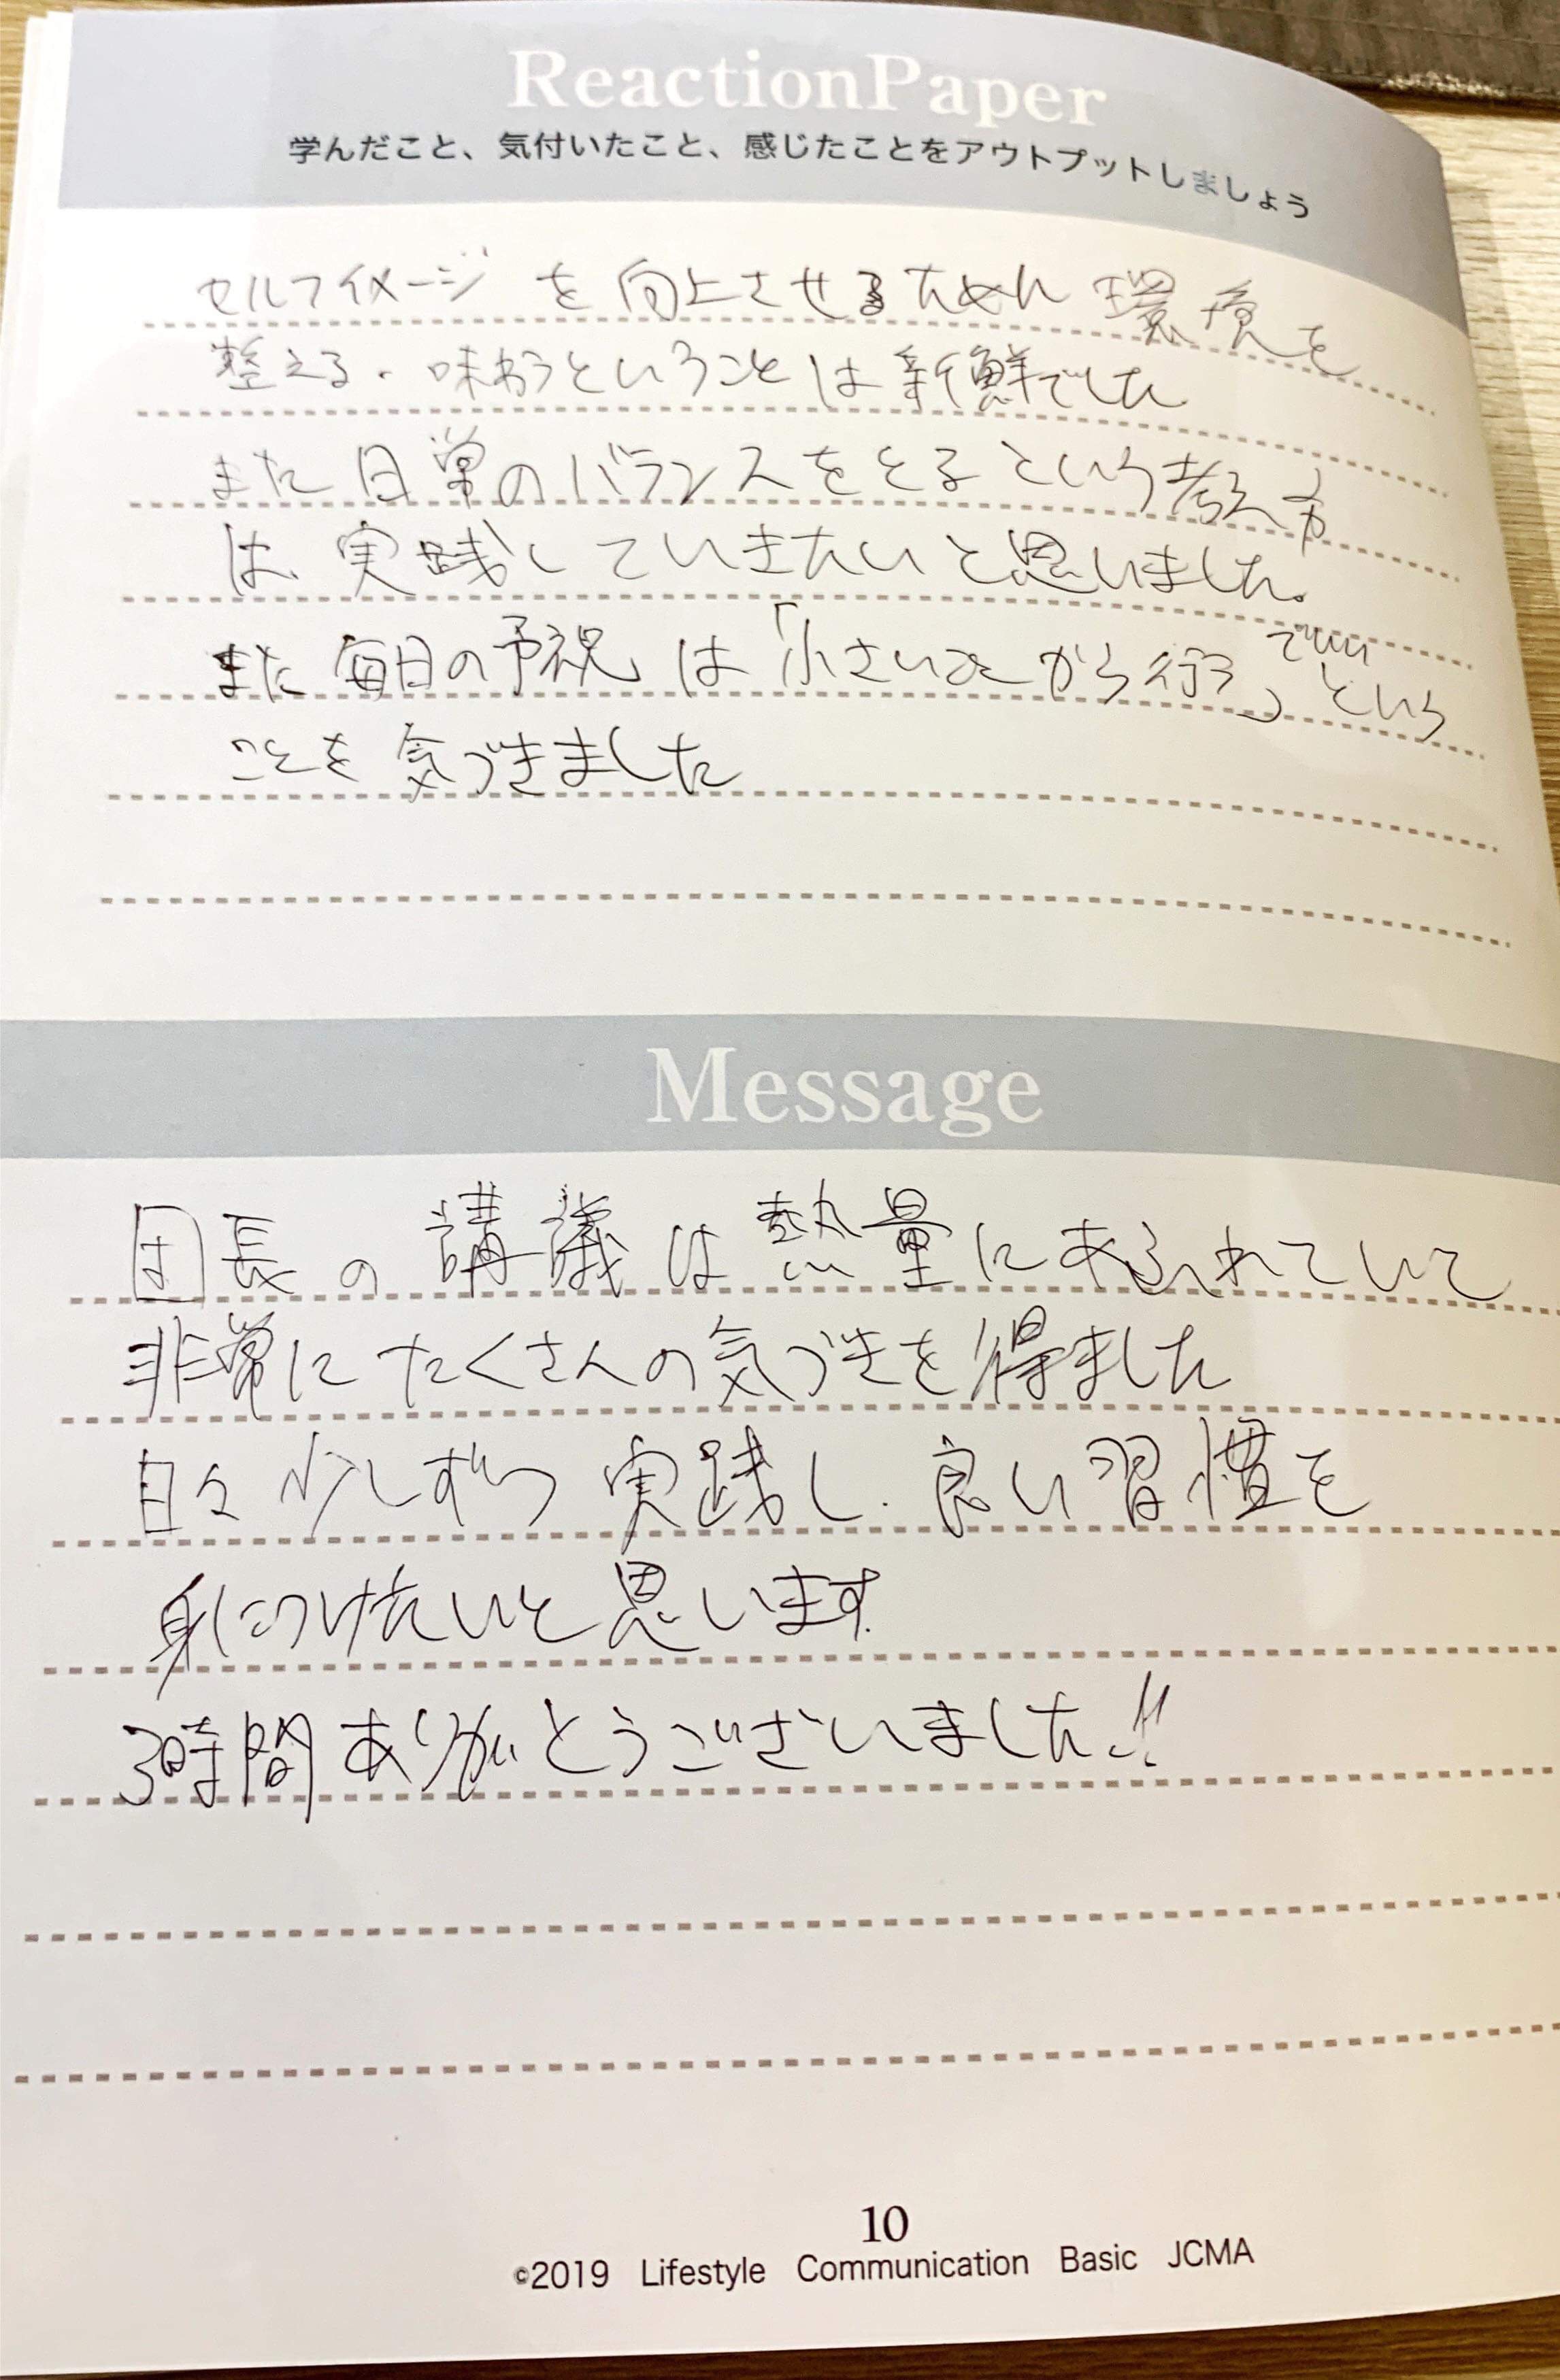 ReactionPaper
学んだこと、気付いたこと、感じたことをアウトプットしましょう
セルフイメージを向上させるために環境を
整える・味わうということは新鮮でした
また日常のバランスをとるという考え方
は、実践していきたいと思いました。
また毎日の予祝は「小さいことから行う」でいいという
ことを気づきました
Message
団長の講義は熱量にあふれていて
非常にたくさんの気づきを得ました
日々少しずつ実践し、良い習慣を
身につけたいと思います。
3時間ありがとうございました!!
10
©2019 Lifestyle Communication Basic JCMA